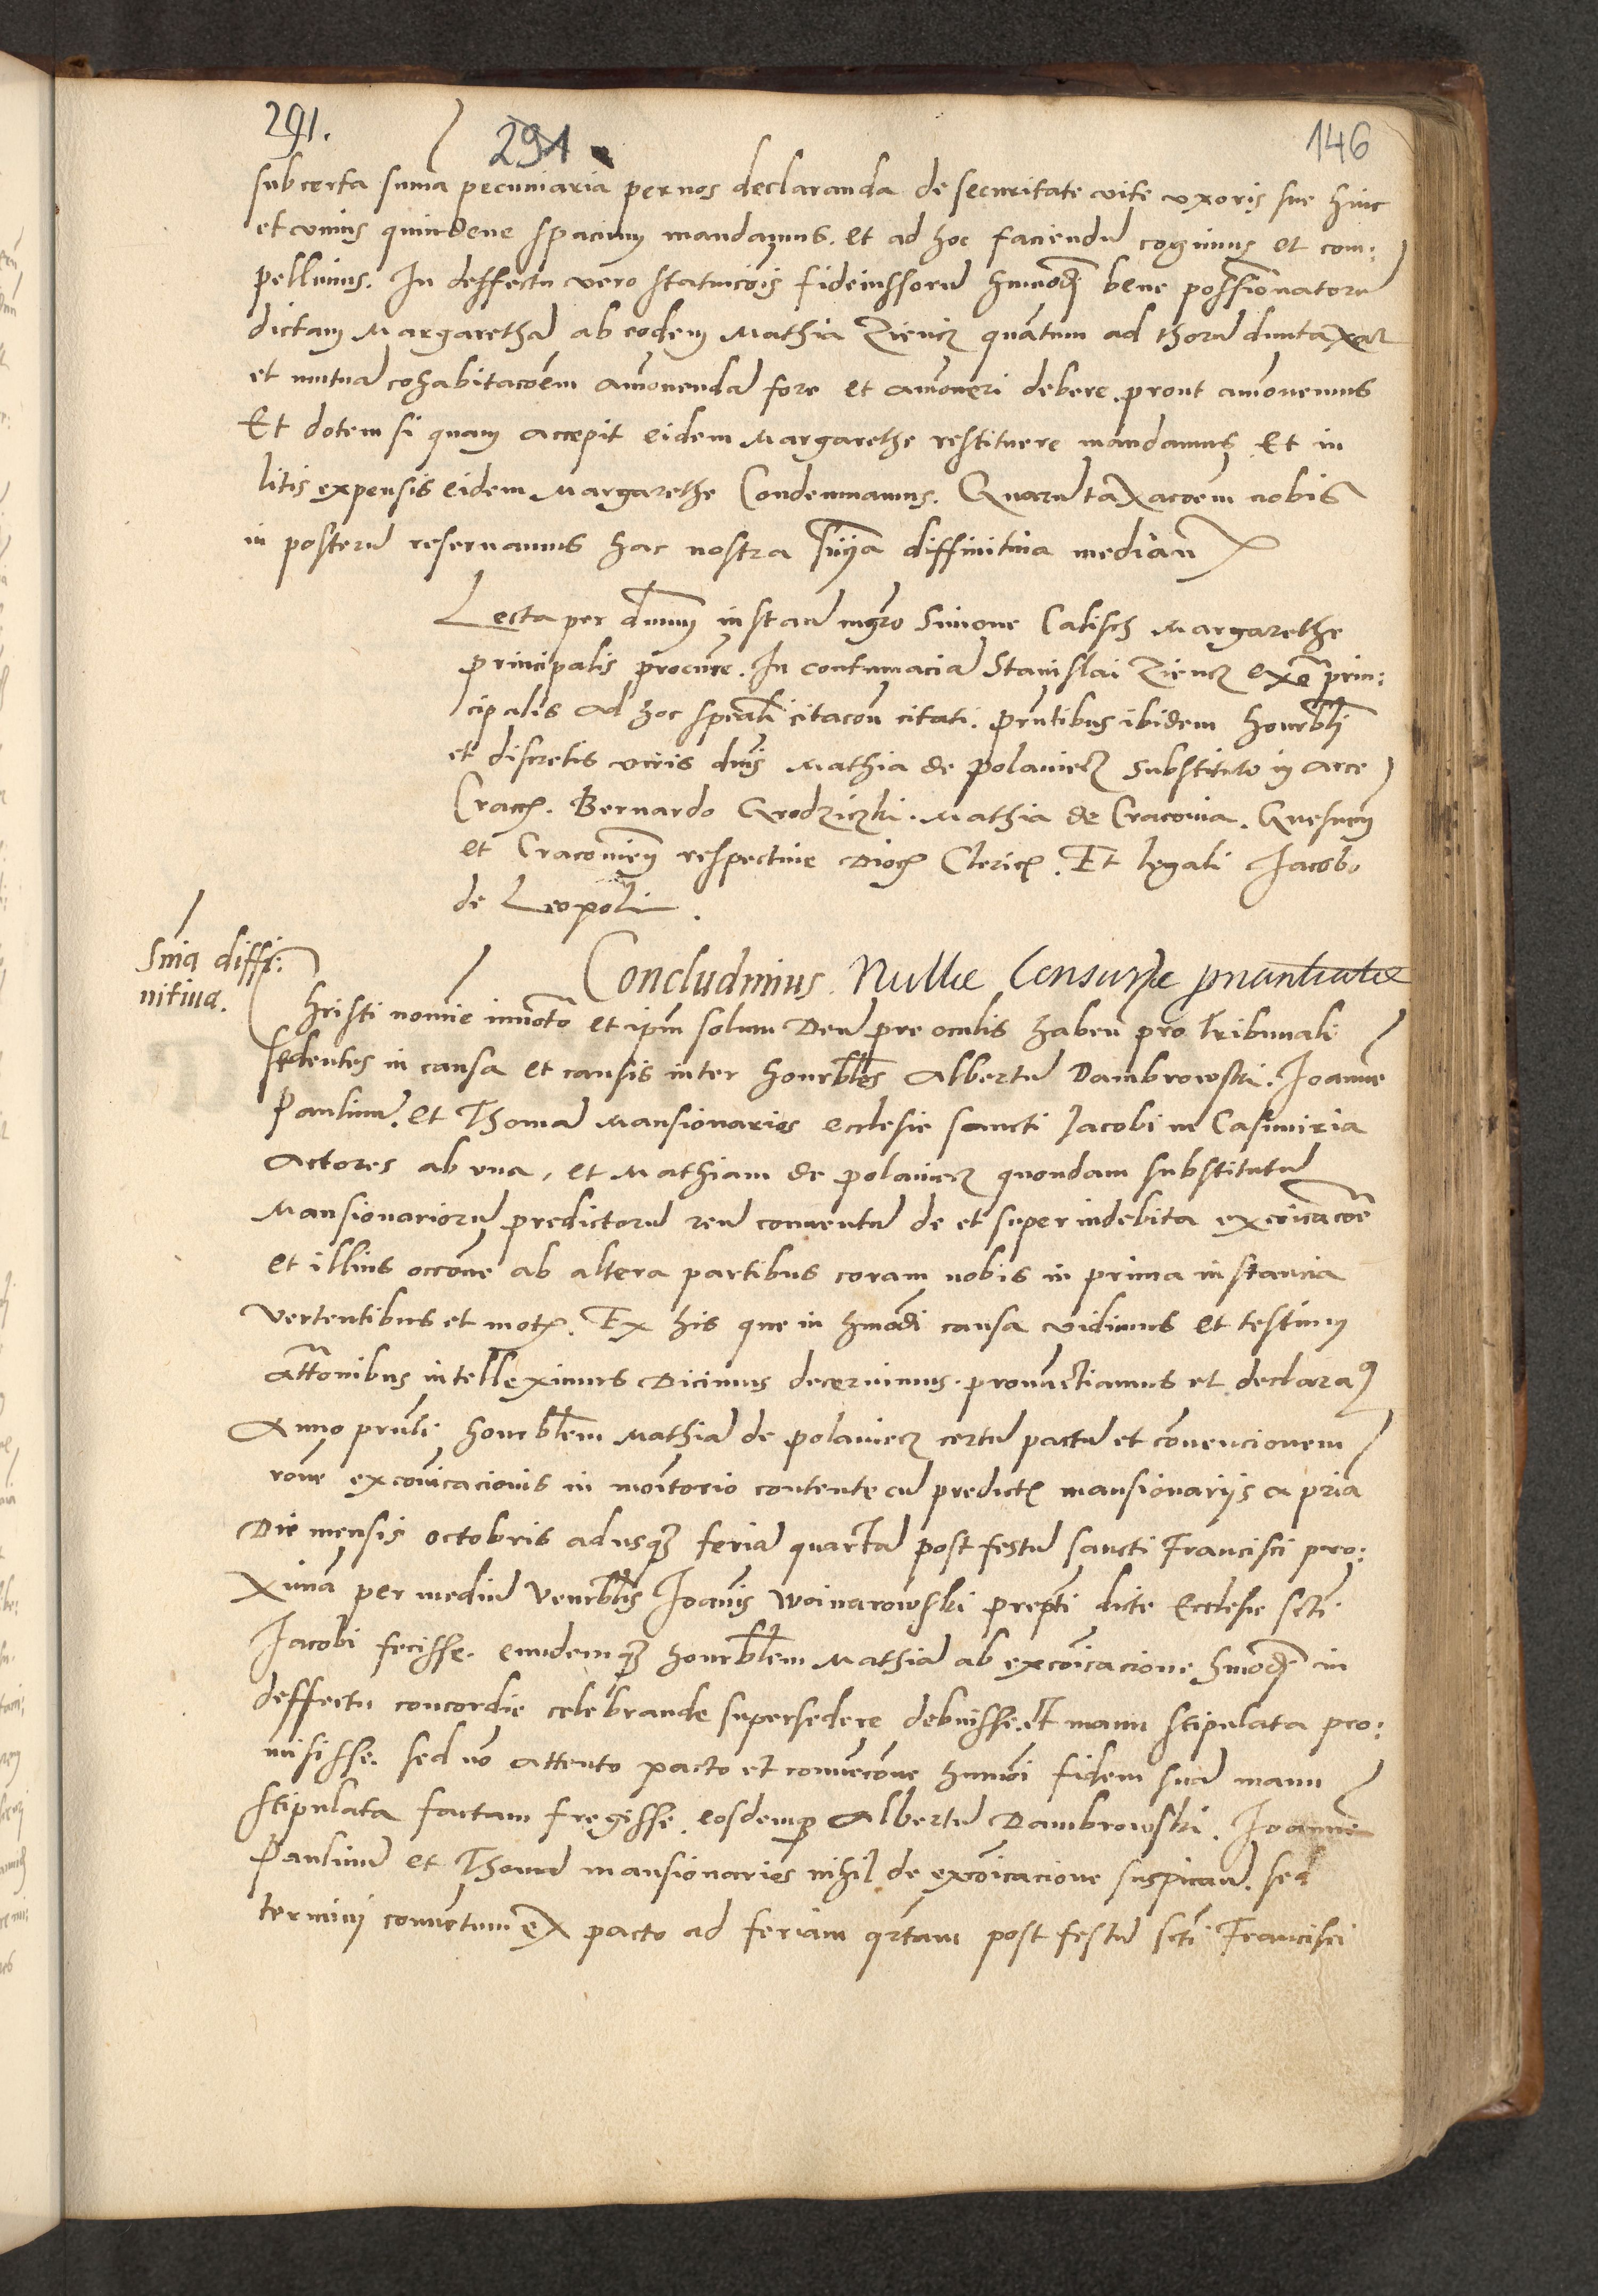 291.
291
146
sub certa suma pecuniaria per nos declaranda de securitate vite vxoris sue hinc
et vnius quindene spacium mandamus. et ad hoc faciendu cogimus et com:
pellimus. In deffectu vero statuicois fideiussoru hmodi bene possionatoru
dictam Margaretha ab eodem Mathia Ziencz quantum ad thoru duntaxat
et mutua cohabitacoem amouenda fore et amoueri debere prout amouemus
Et dotem si quam accepit eidem Margarethe restituere mandamus Et in
litis expensis eidem Margarethe Condemnamus. Quaru taxacoem nobis
in posteru reseruamus hac nostra snia diffinitiua median
Lecta per dnum instan mgro Simone Calisch Margarethe
principalis procure. In contumacia Stanislai Ziencz ex prin:
cipalis ad hoc speali citacon citati. pntibus ibidem honrbli
et discretis viris dnis Mathia de polaniecz substituto in arce
Cracc. Bernardo Grodziczki. Mathia de Cracouia. Gnesnen
et Cracouien respectiue Dioc Clericis. Et legali Jacobo
de Leopoli.
Snia diffi:
nitiua.
Concludimus. Nulle Censure pnuntiatae
Christi nomine inuocato et ipm solum Deu pre oculis haben pro tribunali
sedentes in causa et causis inter honrbles Albertu Dambrowski. Joanne
Paulinu. et Thoma Mansionarios ecclesie sancti Jacobi in Casimiria
Actores ab vna, et Mathiam de polaniecz quondam substitutu
Mansionarioru predictoru reu conuentu de et super indebita excoicacoe
et illius occone ab altera partibus coram nobis in prima instancia
vertentibus et motis. Ex his que in hmodi causa vidimus et testium
attonibus intelleximus Dicimus decernimus. pronunctiamus et declaram9
Anno pnti honrblem Mathia de polaniecz certu pactu et conuencionem
rone excoicacionis in monitorio contente cu predictis mansionarijs a pria
Die mensis octobris ad usq feria quarta post festu sancti Francisci pro:
xima per mediu Venrblis Joanis Woinarowski prepti dicte Ecclesie scti
Jacobi fecisse. eundemq honrblem Mathia ab excoicacione hmodi in
deffectu concordie celebrande supersedere debuisse. et manu stipulata pro:
misisse. sed no attento pacto et conuecone humoi fidem sua manu
stipulata factam fregisse. eosdemq Albertu Dambrowski. Joanne
Paulinu et Thoma mansionarios nihil de excoicacione suspican. sed
terminu conuentum ex pacto ad feriam qrtam post festu scti Francisci